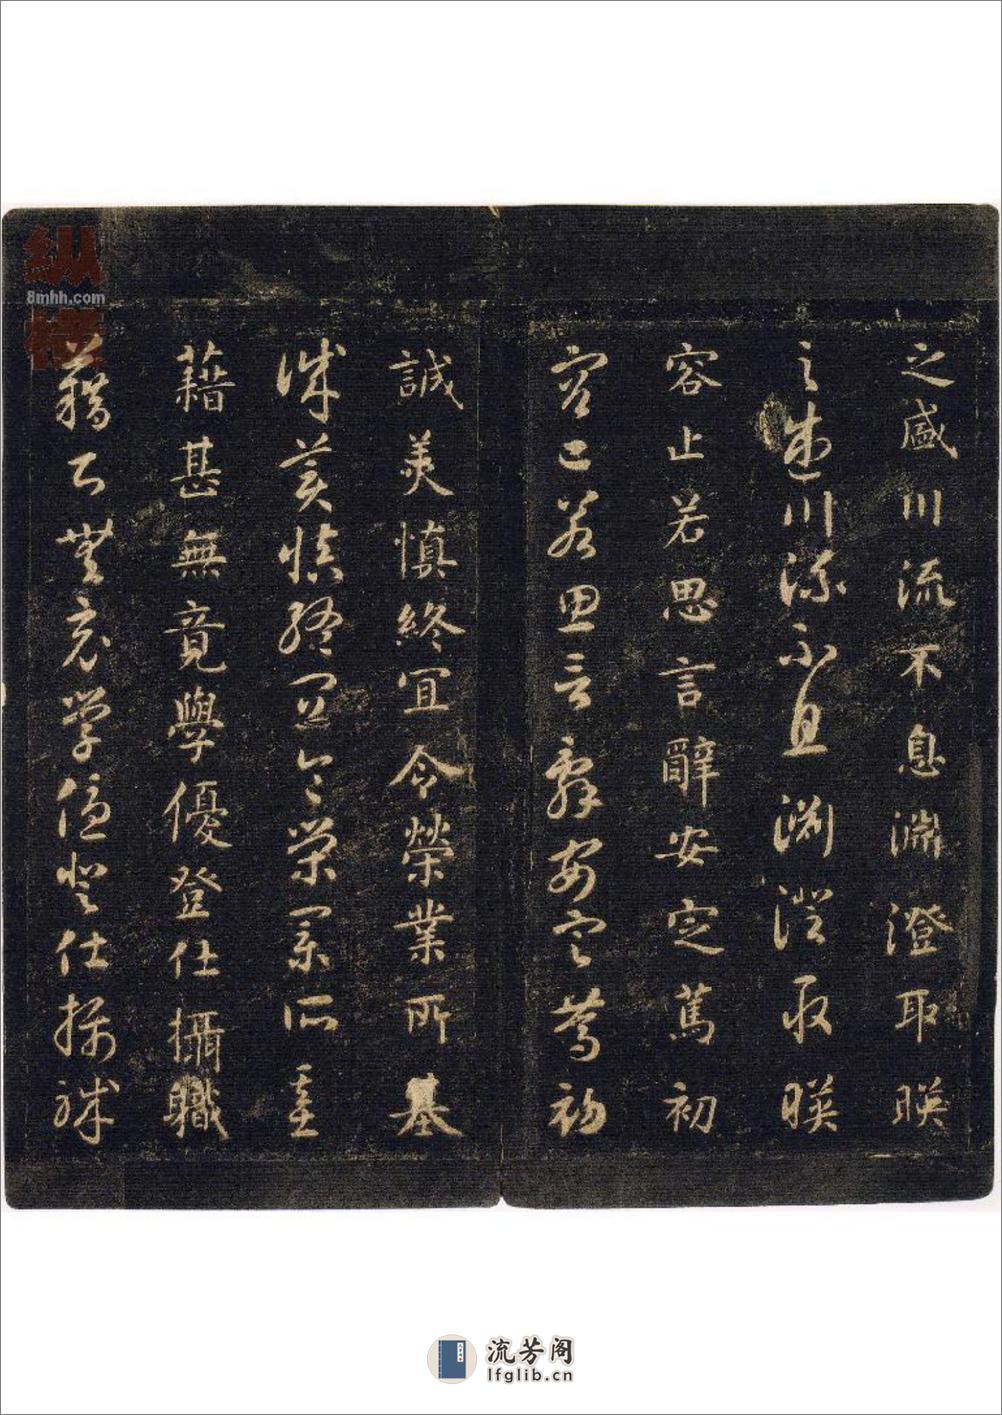 之盛川流不息淵澄取暎
之盛川流不息淵澄取暎
容止若思言辭安定篤初
容止若思言辭安定篤初
誠美慎終宜令榮業所基
誠美慎終宜令榮業所基
藉甚無竟學優登仕攝職
藉甚無竟學優登仕攝職
纵横
8mhh.com
流芳阁
lfglib.cn